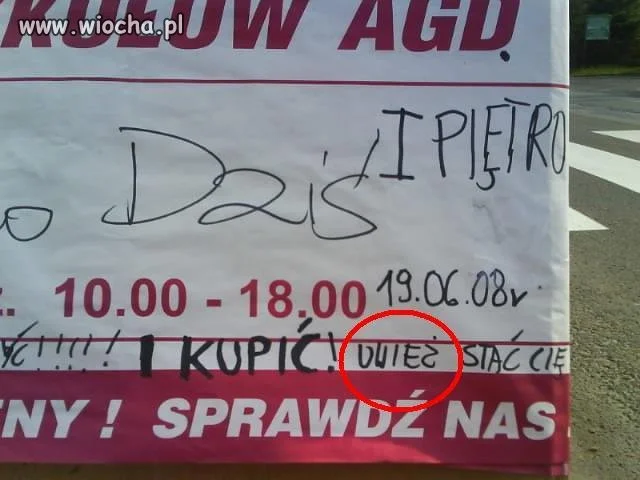 www.wiocha.pl
KUŁÓW AGD
I PIĘTRO
o Dziś
z. 10.00 - 18.00 19.06.08r
AĆ!!!!! I KUPIĆ! UWIEŻ STAĆ CIĘ
ENY ! SPRAWDŹ NAS